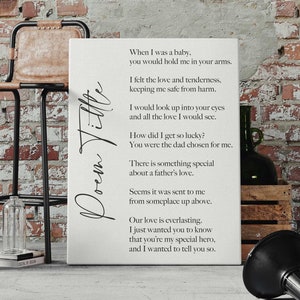 Poem Tittle
When I was a baby,
you would hold me in your arms.
I felt the love and tenderness,
keeping me safe from harm.
I would look up into your eyes
and all the love I would see.
How did I get so lucky?
You were the dad chosen for me.
There is something special
about a father's love.
Seems it was sent to me
from someplace up above.
Our love is everlasting.
I just wanted you to know
that you're my special hero,
and I wanted to tell you so.